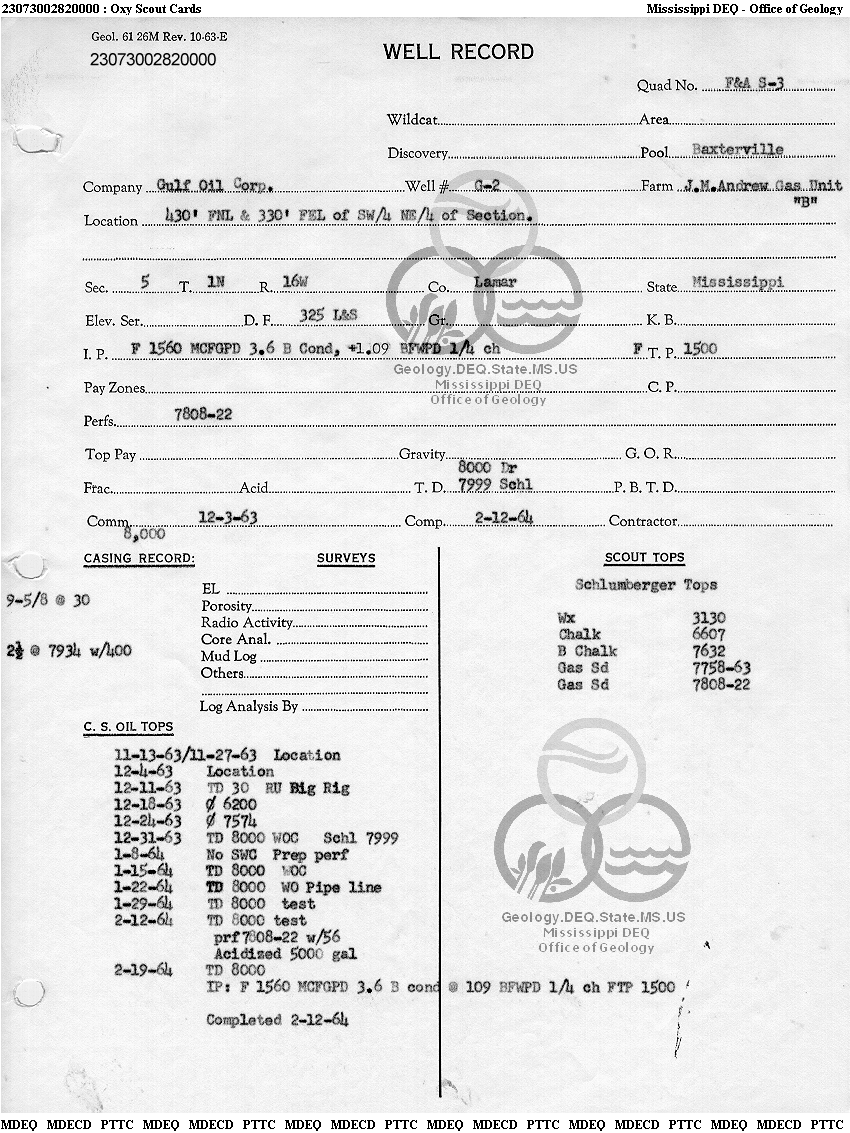 23073002820000 : Oxy Scout Cards Mississippi DEQ - Office of Geology
Geol. 61 26M Rev. 10-63-E
23073002820000
WELL RECORD
Quad No. F&A S-3
Wildcat Area
Discovery Pool Baxterville
Company Gulf Oil Corp. Well # G-2 Farm J.M.Andrew Gas Unit
"B"
Location 430' FNL & 330' FEL of SW/4 NE/4 of Section.
Sec. 5 T. 1N R. 16W Co. Lamar State Mississippi
Elev. Ser. D. F. 325 L&S Gr. K. B.
I. P. F 1560 MCFGPD 3.6 B Cond, +1.09 BFWPD 1/4 ch F T. P. 1500
Geology.DEQ.State.MS.US
Pay Zones Mississippi DEQ C. P.
Office of Geology
Perfs. 7808-22
Top Pay Gravity G. O. R.
8000 Dr
Frac. Acid T. D. 7999 Schl P. B. T. D.
Comm. 12-3-63 Comp. 2-12-64 Contractor
8,000
CASING RECORD: SURVEYS SCOUT TOPS
Schlumberger Tops
EL
9-5/8 @ 30
Porosity
Radio Activity Wx 3130
Core Anal. Chalk 6607
2½ @ 7934 w/400 Mud Log B Chalk 7632
Others Gas Sd 7758-63
Gas Sd 7808-22
Log Analysis By
C. S. OIL TOPS
11-13-63/11-27-63 Location
12-4-63 Location
12-11-63 TD 30 RU Big Rig
12-18-63 Ø 6200
12-24-63 Ø 7574
12-31-63 TD 8000 WOC Schl 7999
1-8-64 No SWC Prep perf
1-15-64 TD 8000 WOC
1-22-64 TD 8000 WO Pipe line
1-29-64 TD 8000 test
2-12-64 TD 8000 test
prf7808-22 w/56
Acidized 5000 gal
Geology.DEQ.State.MS.US
Mississippi DEQ
Office of Geology
2-19-64 TD 8000
IP: F 1560 MCFGPD 3.6 B cond @ 109 BFWPD 1/4 ch FTP 1500
Completed 2-12-64
MDEQ MDECD PTTC MDEQ MDECD PTTC MDEQ MDECD PTTC MDEQ MDECD PTTC MDEQ MDECD PTTC MDEQ MDECD PTTC